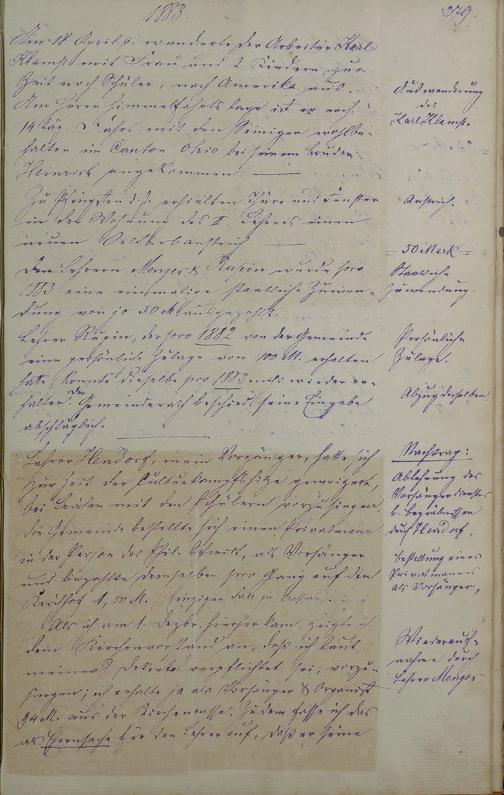 1883.
379.
Am 18 April d. wanderte der Arbeiter Karl
Klamp mit Frau und 2 Kindern, zur
Zeit noch Schüler, nach Amerika aus.
Am Herrn Himmelfahrtstage ist er nach
14 täg. Fahrt mit den Seinigen wohlbe-
halten in Canton Ohio bei seinem Bruder
Heinrich angekommen.
Auswanderung
des
Karl Klamp.
Zu Pfingsten d. J. erhielten Thüre und Fenster
in der Wohnung des II Lehrers einen
neuen Anstrich.
Anstrich.
Den Lehrern Menges & Rupin wurde pro
1883 eine einmalige staatliche Zuwen-
dung von je 50 M ausgezahlt.
50 Mark
Staatliche
Zuwendung.
Lehrer Rupin, der pro 1882 von der Gemeinde
eine persönliche Zulage von 100 M. erhalten
hatte, konnte dieselbe pro 1883 nicht wieder er-
halten. Der Gemeinderath beschied seine Eingabe
abschläglich.
Persönliche
Zulage.
Abzug derselben
Lehrer Hendorf, mein Vorgänger, hatte sich
zur Zeit der Culturkampfhitze geweigert,
bei Leichen mit den Schülern vorzusingen.
Die Gemeinde bestellte sich einen Privatmann
in der Person des Phil. Schmidt, als Vorsänger
und bezahlte demselben pro Gang auf den
Kirchhof 1,50 M. (einziger Fall in Nassau).
Nachtrag:
Ablehnung des
Vorsängerdienstes
b. Begräbnissen
durch Hendorf,
Bestellung eines
Privatmannes
als Vorsänger,
Als ich am 1. Dezbr. hierher kam, zeigte ich
dem Kirchenvorstand an, daß ich laut
meines Dekrets verpflichtet sei, vorzu-
singen; ich erhalte ja als Vorsänger & Organist
94 M. aus der Kirchencasse. Zudem fasse ich das
als Ehrensache für den Lehrer auf, daß er seine
Wiederauf-
nahme durch
Lehrer Menges.